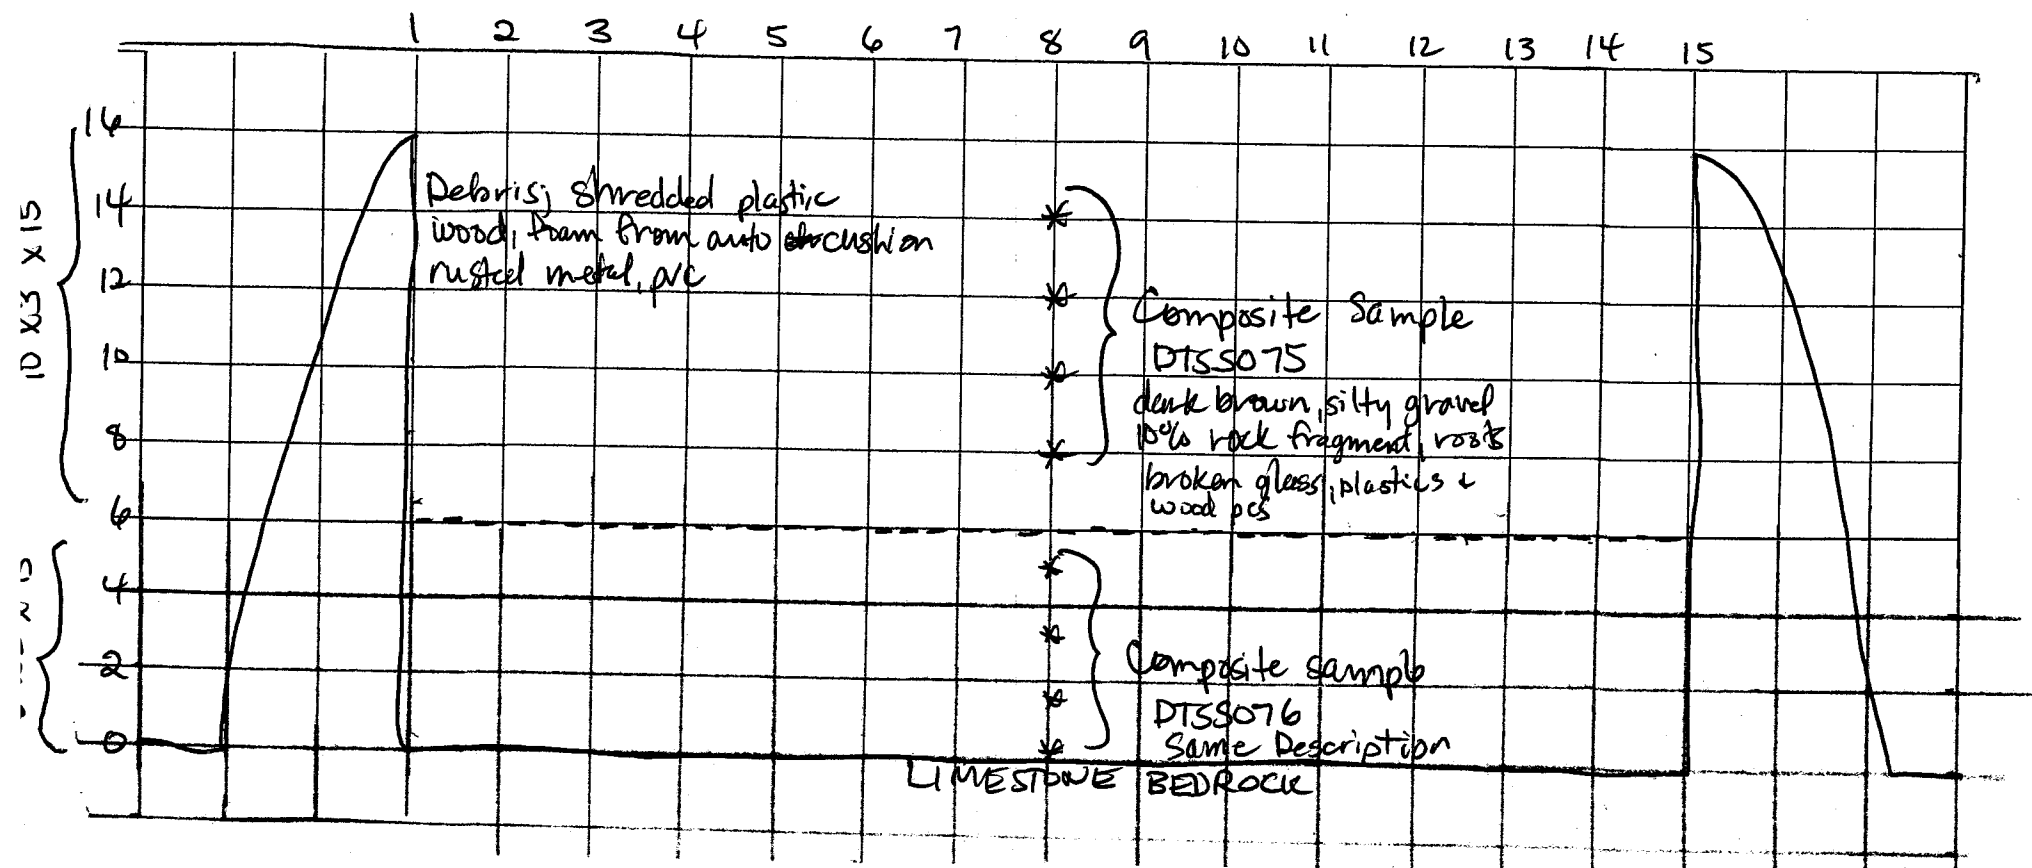 1 2 3 4 5 6 7 8 9 10 11 12 13 14 15
16
14
12
10
8
6
4
2
0
10 X3 X15
Debris; shredded plastic
wood, foam from auto cushion
rusted metal, pvc
Composite Sample
DTSS075
dark brown, silty gravel
10% rock fragment, roots
broken glass, plastics +
wood pcs
Composite sample
DTSS076
Same Description
LIMESTONE BEDROCK